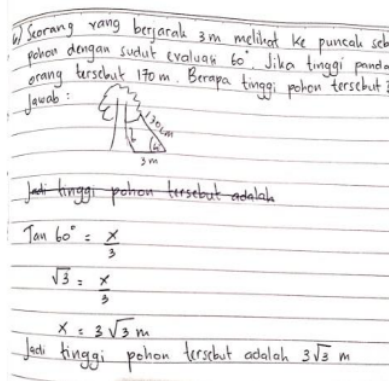 6) Seorang yang berjarak 3 m melihat ke puncak seb
pohon dengan sudut evaluasi 60°. Jika tinggi panda
orang tersebut 170 m. Berapa tinggi pohon tersebut?
Jawab :
170 cm
x
60°
3 m
Jadi tinggi pohon tersebut adalah
Tan 60° = x/3
√3 = x/3
x = 3√3 m
Jadi tinggi pohon tersebut adalah 3√3 m